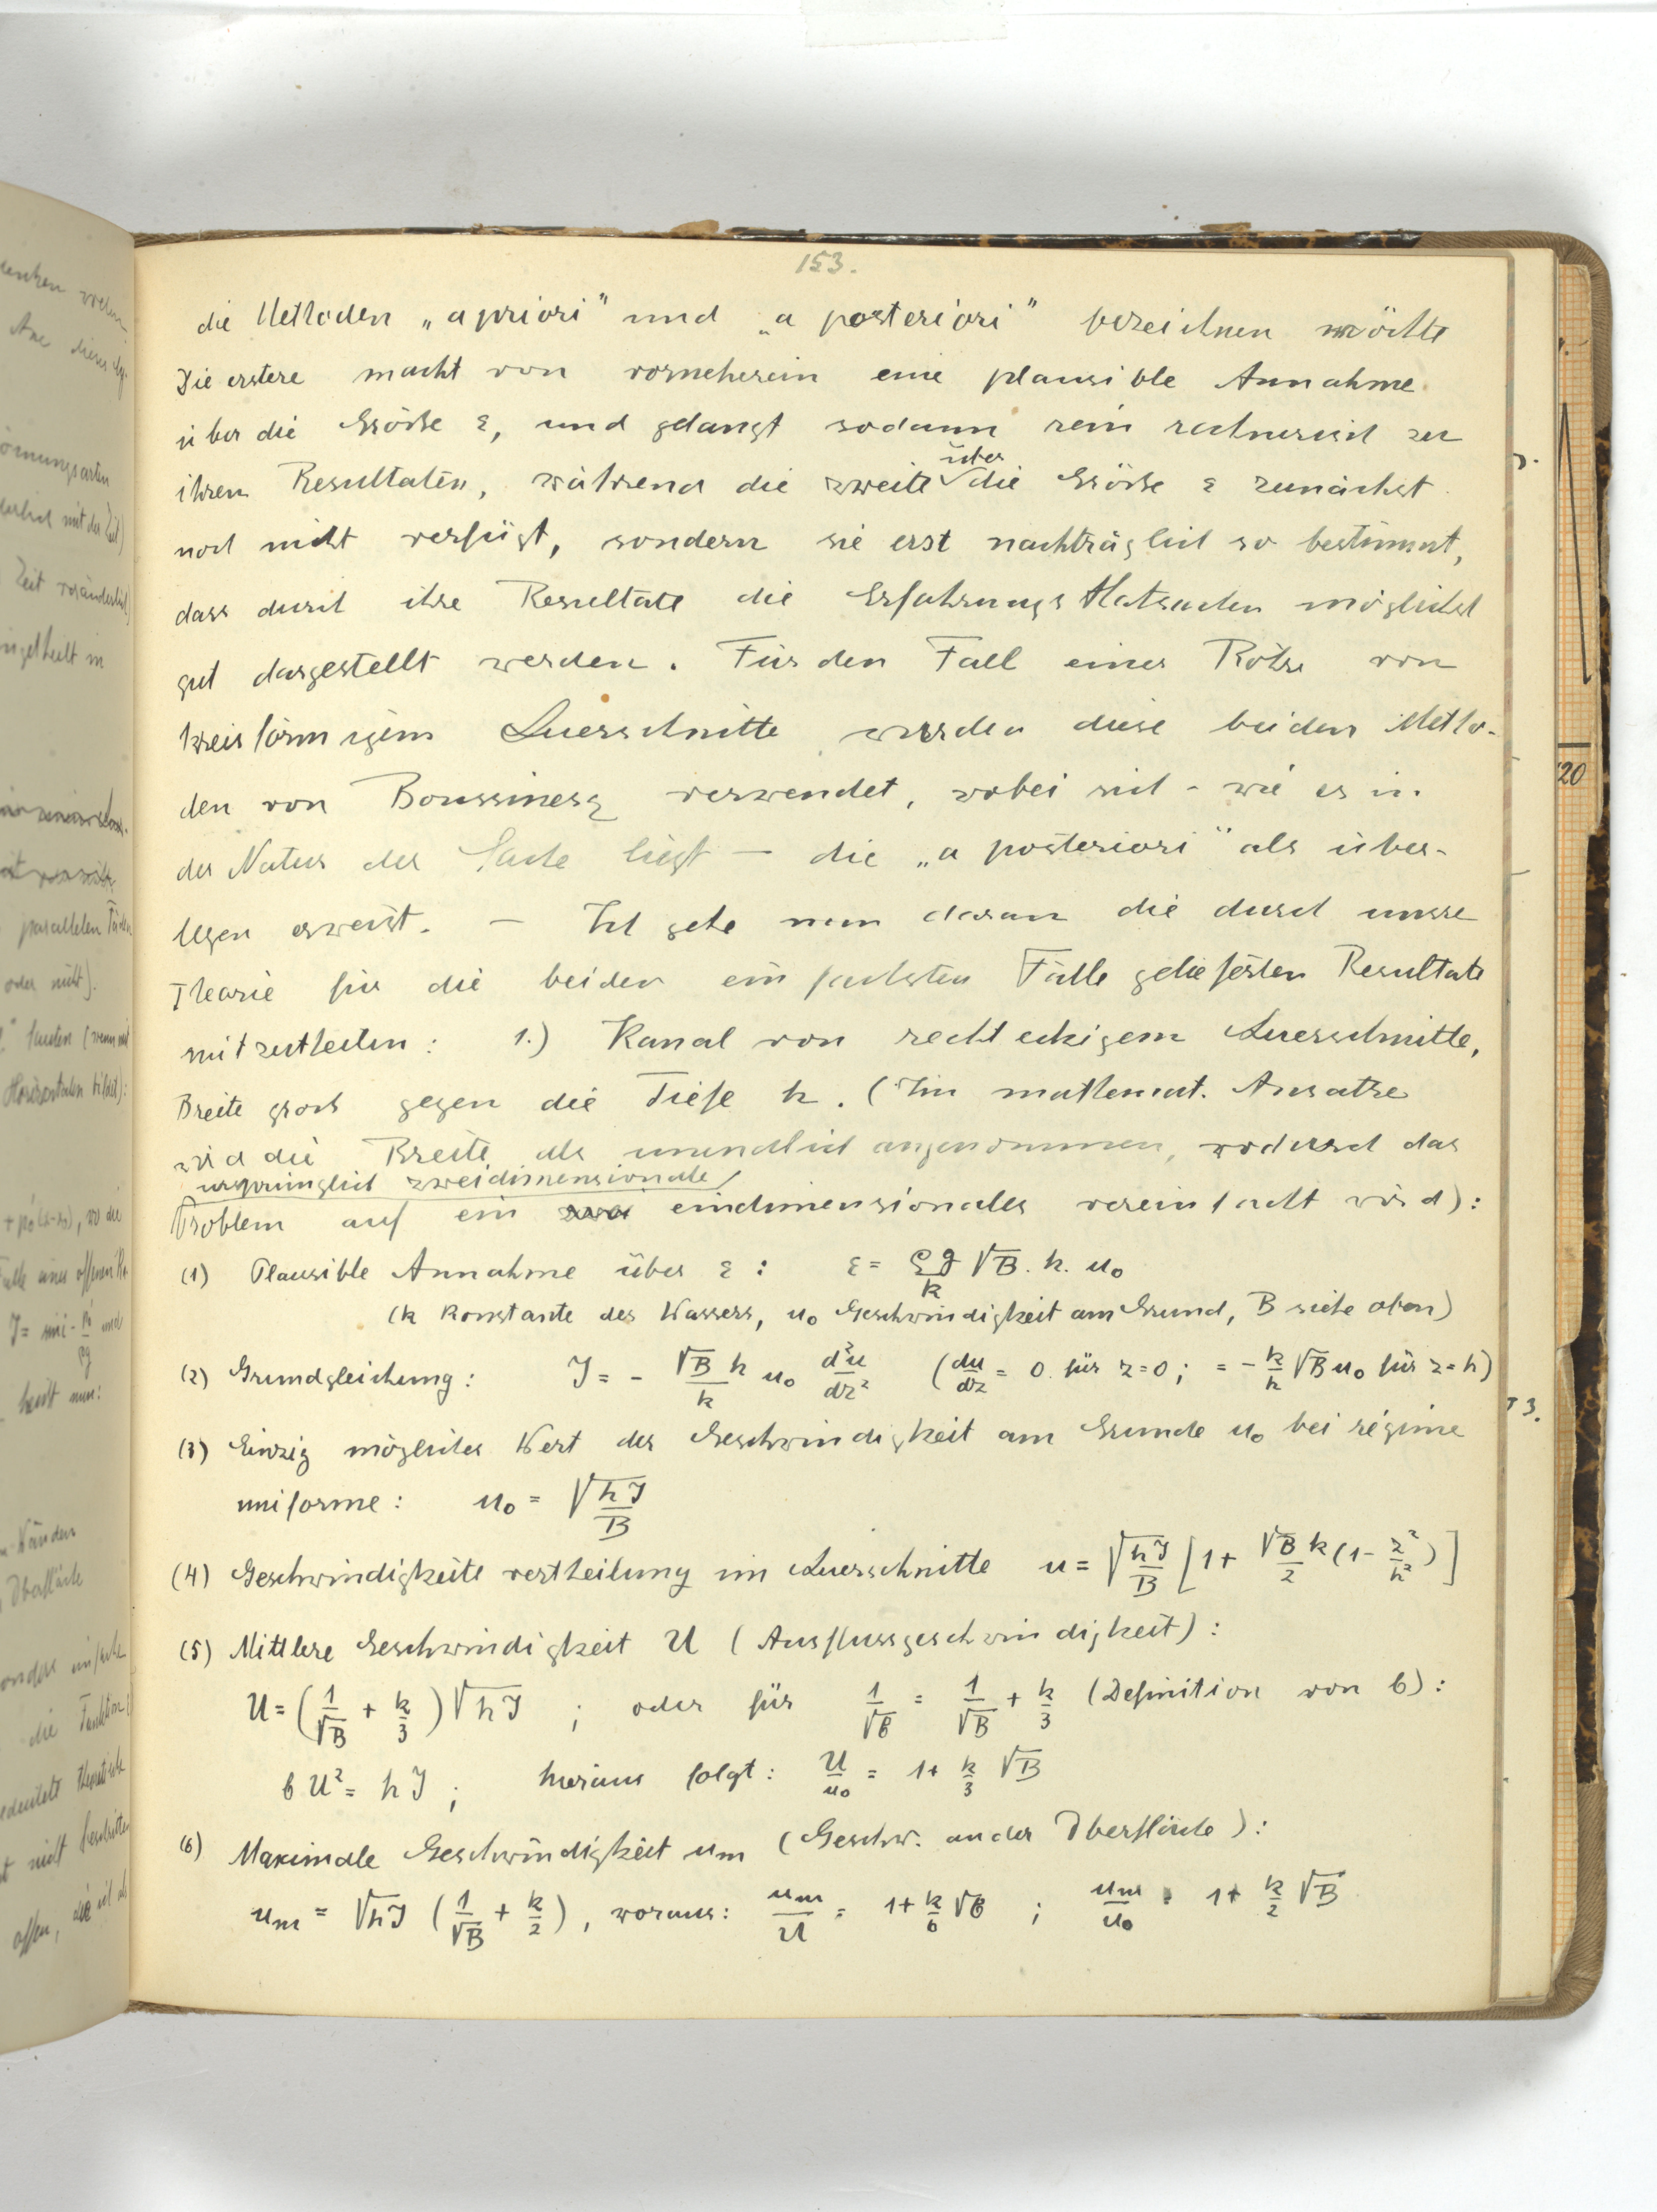 153.
die Methoden „a priori" und „a posteriori" bezeichnen möchte
Die erstere macht von vorneherein eine plausible Annahme
über die Größe ε, und gelangt sodann rein rechnerisch zu
ihren Resultaten, während die zweite über die Größe ε zunächst
noch nicht verfügt, sondern sie erst nachträglich so bestimmt,
dass durch ihre Resultate die Erfahrungsthatsachen möglichst
gut dargestellt werden. Für den Fall einer Röhre von
kreisförmigem Querschnitte wurden diese beiden Metho-
den von Boussinesq verwendet, wobei sich - wie es in
der Natur der Sache liegt - die „a posteriori" als über-
legen erweist. - Ich gehe nun daran die durch unsere
Theorie für die beiden einfachsten Fälle gelieferten Resultate
mitzutheilen: 1.) Kanal von rechteckigem Querschnitte,
Breite groß gegen die Tiefe h. (Im mathemat. Ansatze
wird die Breite als unendlich angenommen, wodurch das
ursprünglich zweidimensionale
Problem auf ein eindimensionales vereinfacht wird):
(1) Plausible Annahme über ε: ε = ρg/k √B. h. u₀
(k Konstante des Wassers, u₀ Geschwindigkeit am Grund, B siehe oben)
(2) Grundgleichung: J = - √B h/k u₀ d²u/dz² (du/dz = 0 für z=0; = - k/h √B u₀ für z=h)
(3) Einzig möglicher Wert der Geschwindigkeit am Grunde u₀ bei régime
uniforme: u₀ = √hJ/B
(4) Geschwindigkeitsvertheilung im Querschnitte u = √hJ/B [1+ √B k/2 (1- z²/h²)]
(5) Mittlere Geschwindigkeit U (Ausflussgeschwindigkeit):
U = (1/√B + k/3) √hJ ; oder für 1/√b = 1/√B + k/3 (Definition von b):
b U² = hJ ; hieraus folgt: U/u₀ = 1+ k/3 √B
(6) Maximale Geschwindigkeit um (Geschw. an der Oberfläche):
um = √hJ (1/√B + k/2), woraus: um/U = 1+ k/6 √b ; um/u₀ = 1+ k/2 √B
20